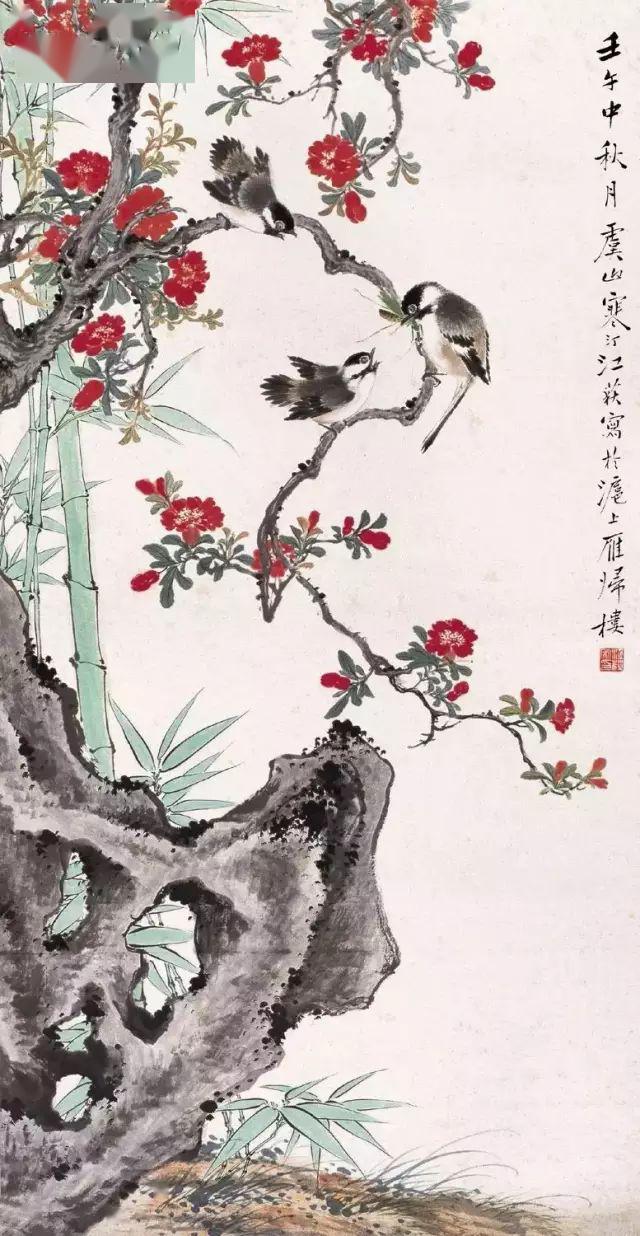 壬午中秋月虞山寒汀江荻寫於滬上雁歸樓